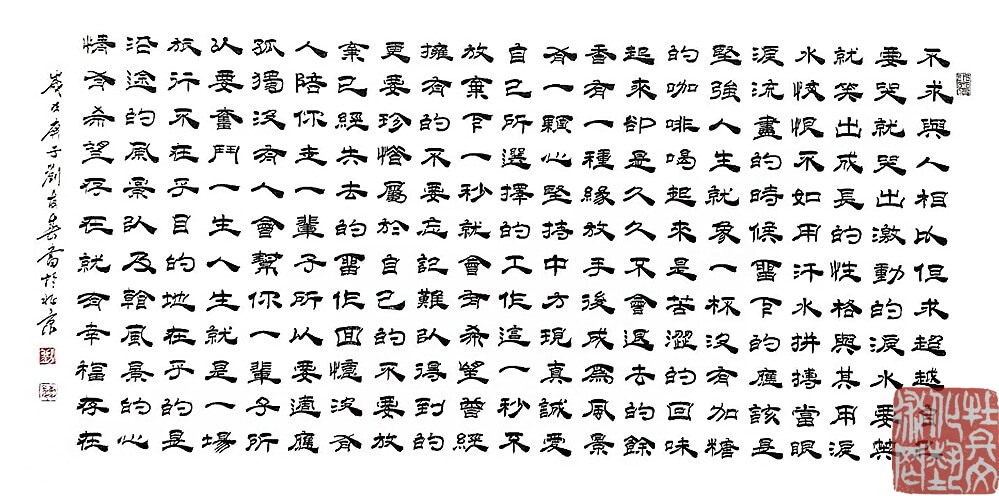 不求與人相比但求超越自己
要哭就哭出激動的淚水要笑
就笑出成長的性格與其用淚
水悔恨不如用汗水拼搏當眼
淚流盡的時候留下的應該是
堅強人生就象一杯沒有加糖
的咖啡喝起來是苦澀的回味
起來卻是久久不會退去的餘
香有一種緣放手後成為風景
有一顆心堅持中方現真誠愛
自己所選擇的工作這一秒不
放棄下一秒就會有希望曾經
擁有的不要忘記難以得到的
更要珍惜屬於自己的不要放
棄已經失去的留作回憶沒有
人陪你走一輩子所以要適應
孤獨沒有人會幫你一輩子所
以要奮鬥一生人生就是一場
旅行不在乎目的地在乎的是
沿途的風景以及看風景的心
情有希望存在就有幸福存在
歲在庚子劉春書於北京